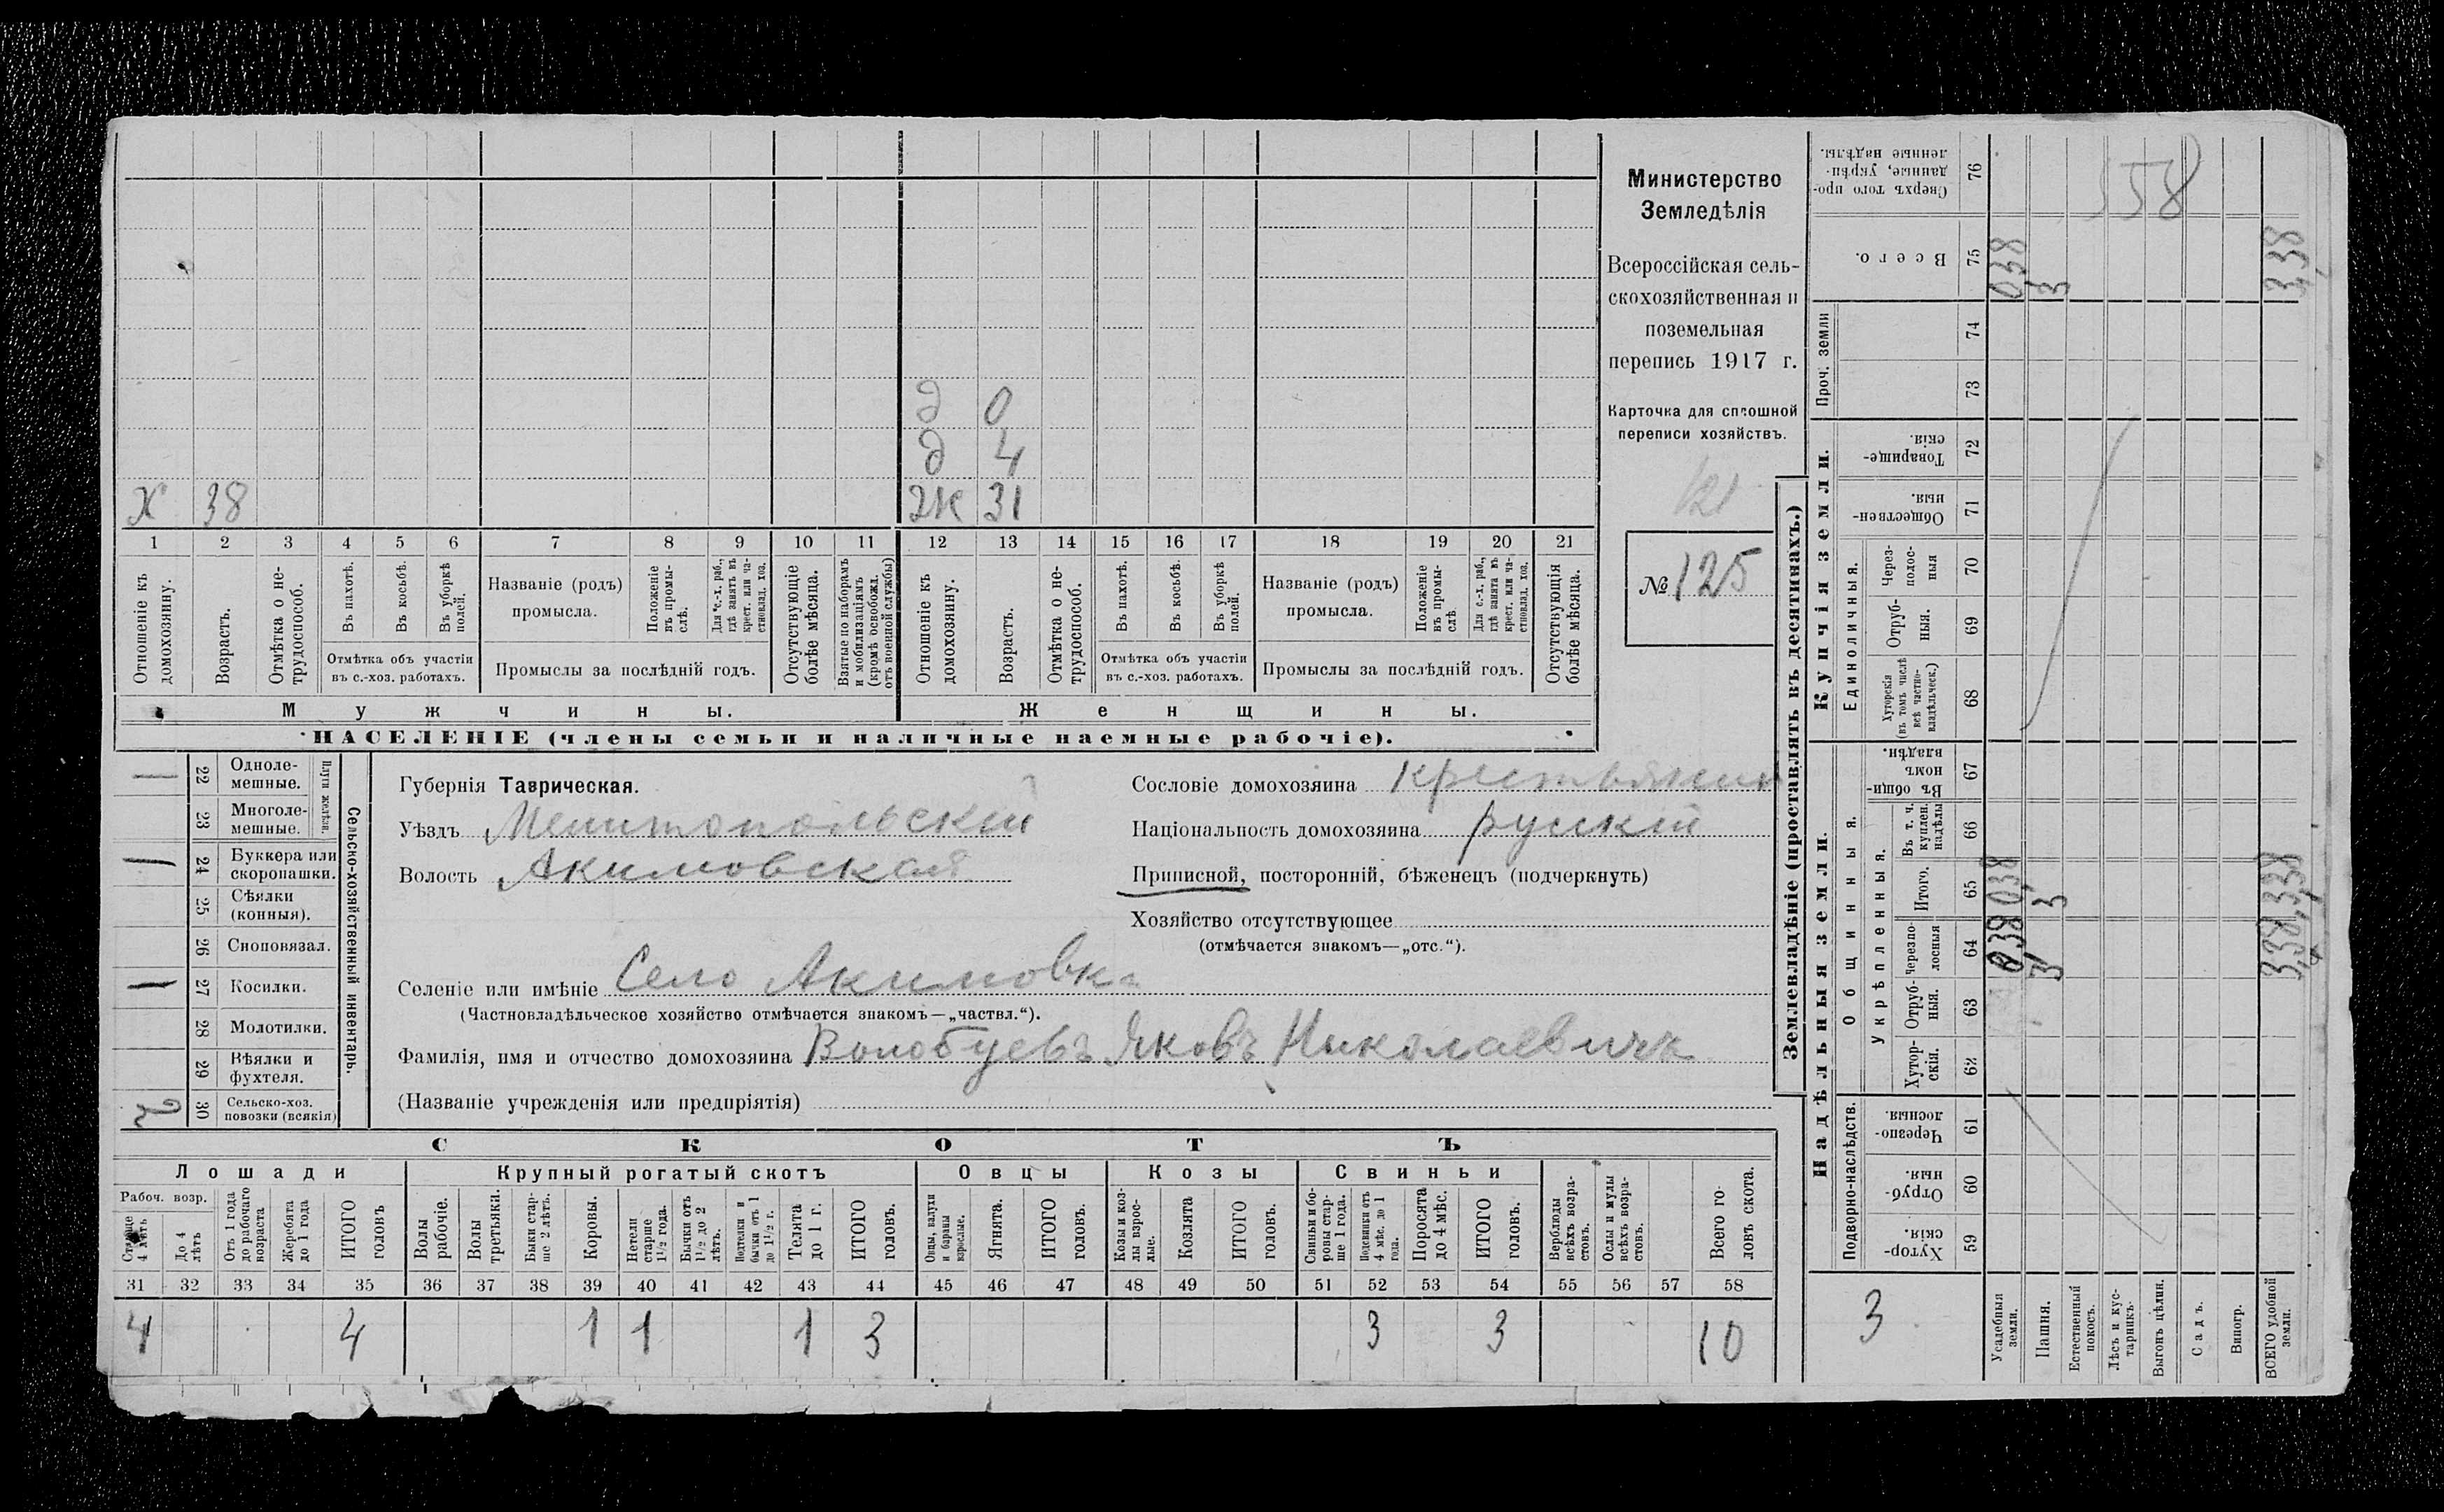 Министерство
Земледѣлія
Всероссійская сель-
скохозяйственная и
поземельная
перепись 1917 г.
Карточка для сплошной
переписи хозяйствъ.
121
№ 125
д 0
д 4
х 38 ж 31
1 2 3 4 5 6 7 8 9 10 11 12 13 14 15 16 17 18 19 20 21
Отношеніе къ домохозяину.
Возрастъ.
Отмѣтка о не-трудоспособ.
Въ пахотѣ.
Въ косьбѣ.
Въ уборкѣ полей.
Отмѣтка объ участіи
въ с.-хоз. работахъ.
Названіе (родъ)
промысла.
Положеніе въ промы-слѣ.
Для с.-х. раб., гдѣ занятъ въ крест. или ча-стновлад. хоз.
Промыслы за послѣдній годъ.
Отсутствующіе болѣе мѣсяца.
Взятые по наборамъ и мобилизаціямъ (кромѣ освобожд. отъ военной службы)
Отношеніе къ домохозяину.
Возрастъ.
Отмѣтка о не-трудоспособ.
Въ пахотѣ.
Въ косьбѣ.
Въ уборкѣ полей.
Отмѣтка объ участіи
въ с.-хоз. работахъ.
Названіе (родъ)
промысла.
Положеніе въ промы-слѣ.
Для с.-х. раб., гдѣ занята въ крест. или ча-стновлад. хоз.
Промыслы за послѣдній годъ.
Отсутствующія болѣе мѣсяца.
Мужчины. Женщины.
НАСЕЛЕНІЕ (члены семьи и наличные наемные рабочіе).
Сельско-хозяйственный инвентарь.
Плуги желѣзн.
22 Одноле-мешные.
23 Многоле-мешные.
24 Буккера или скоропашки.
25 Сѣялки (конныя).
26 Сноповязал.
27 Косилки.
28 Молотилки.
29 Вѣялки и фухтеля.
2 30 Сельско-хоз. повозки (всякія)
Губернія Таврическая.
Уѣздъ Мелитопольскій
Волость Акимовская
Сословіе домохозяина крестьянин
Національность домохозяина русскій
Приписной, посторонній, бѣженецъ (подчеркнуть)
Хозяйство отсутствующее
(отмѣчается знакомъ—„отс.“).
Селеніе или имѣніе Село Акимовка
(Частновладѣльческое хозяйство отмѣчается знакомъ—„частвл.“).
Фамилія, имя и отчество домохозяина Волобуевъ Яковъ Николаевичъ
(Названіе учрежденія или предпріятія)
СКОТЪ
Лошади Крупный рогатый скотъ Овцы Козы Свиньи
Рабоч. возр.
Старше 4 лѣтъ
До 4 лѣтъ
Отъ 1 года до рабочаго возраста
Жеребята до 1 года
ИТОГО головъ
Волы рабочіе.
Волы третьяки.
Быки стар-ше 2 лѣтъ.
Коровы.
Нетели старше 1½ года.
Бычки отъ 1½ до 2 лѣтъ.
Подтелки и бычки отъ 1 до 1½ г.
Телята до 1 г.
ИТОГО головъ.
Овцы, валухи и бараны взрослые.
Ягнята.
ИТОГО головъ.
Козы и коз-лы взрос-лые.
Козлята
ИТОГО головъ.
Свиньи и бо-ровы стар-ше 1 года.
Подсвинки отъ 4 мѣс. до 1 года.
Поросята до 4 мѣс.
ИТОГО головъ.
Верблюды всѣхъ возра-стовъ.
Ослы и мулы всѣхъ возра-стовъ.
Всего го-ловъ скота.
31 32 33 34 35 36 37 38 39 40 41 42 43 44 45 46 47 48 49 50 51 52 53 54 55 56 57 58
4 4 1 1 1 3 3 3 10
Землевладѣніе (проставлять въ десятинахъ.)
Надѣльныя земли.
Купчія земли.
Проч. земли
Подворно-наслѣдств.
Общинныя.
Укрѣпленныя.
Единоличныя.
Хутор-скія. 59
Отруб-ныя. 60
Черезпо-лосныя. 61
Хутор-скія. 62
Отруб-ныя. 63
Черезпо-лосныя 64
Итого. 65
Въ т. ч. куплен. надѣлы 66
Въ общин-номъ владѣн. 67
Хуторскія (въ томъ числѣ всѣ частно-владѣльческ.) 68
Отруб-ныя. 69
Через-полос-ныя 70
Обществен-ныя. 71
Товарище-скія. 72
73
74
Всего. 75
Сверхъ того про-данные, укрѣп-ленные надѣлы. 76
Усадебныя земли. 038 038 038
Пашня. 3 3 3
Естественный покосъ.
Лѣсъ и кус-тарникъ.
Выгонъ цѣлин.
Садъ.
Виногр.
ВСЕГО удобной земли. 3,38 3,38 3,38
3
158